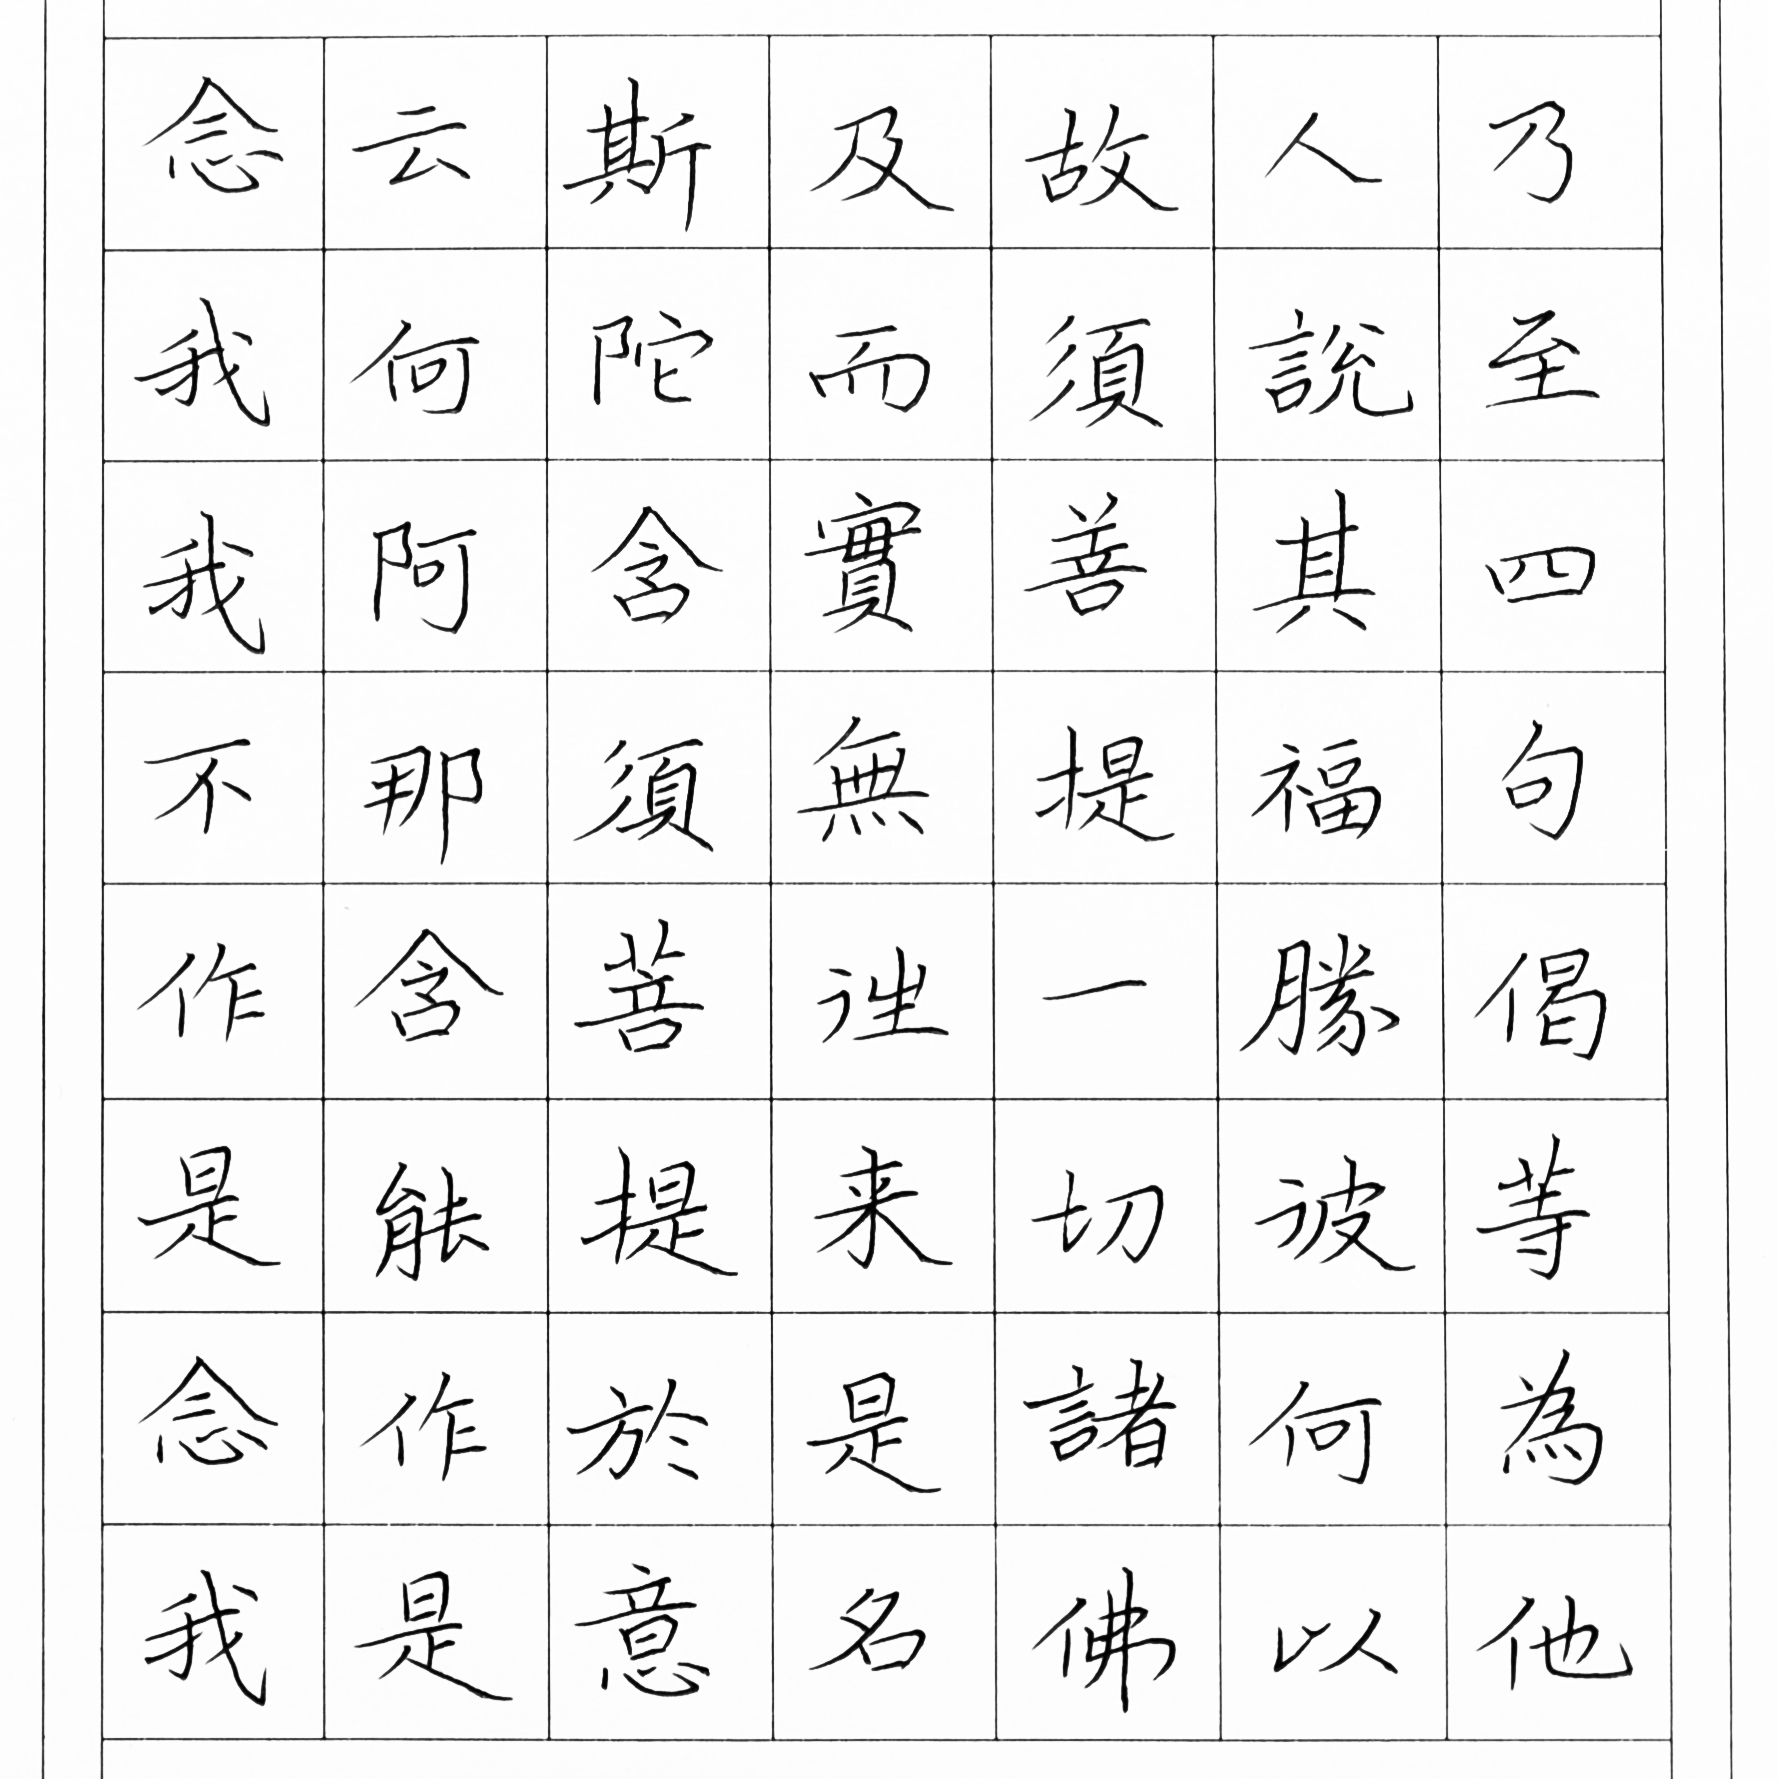 乃至四句偈等為他
人說其福勝彼何以
故須菩提一切諸佛
及而實無往来是名
斯陀含須菩提於意
云何阿那含能作是
念我我不作是念我